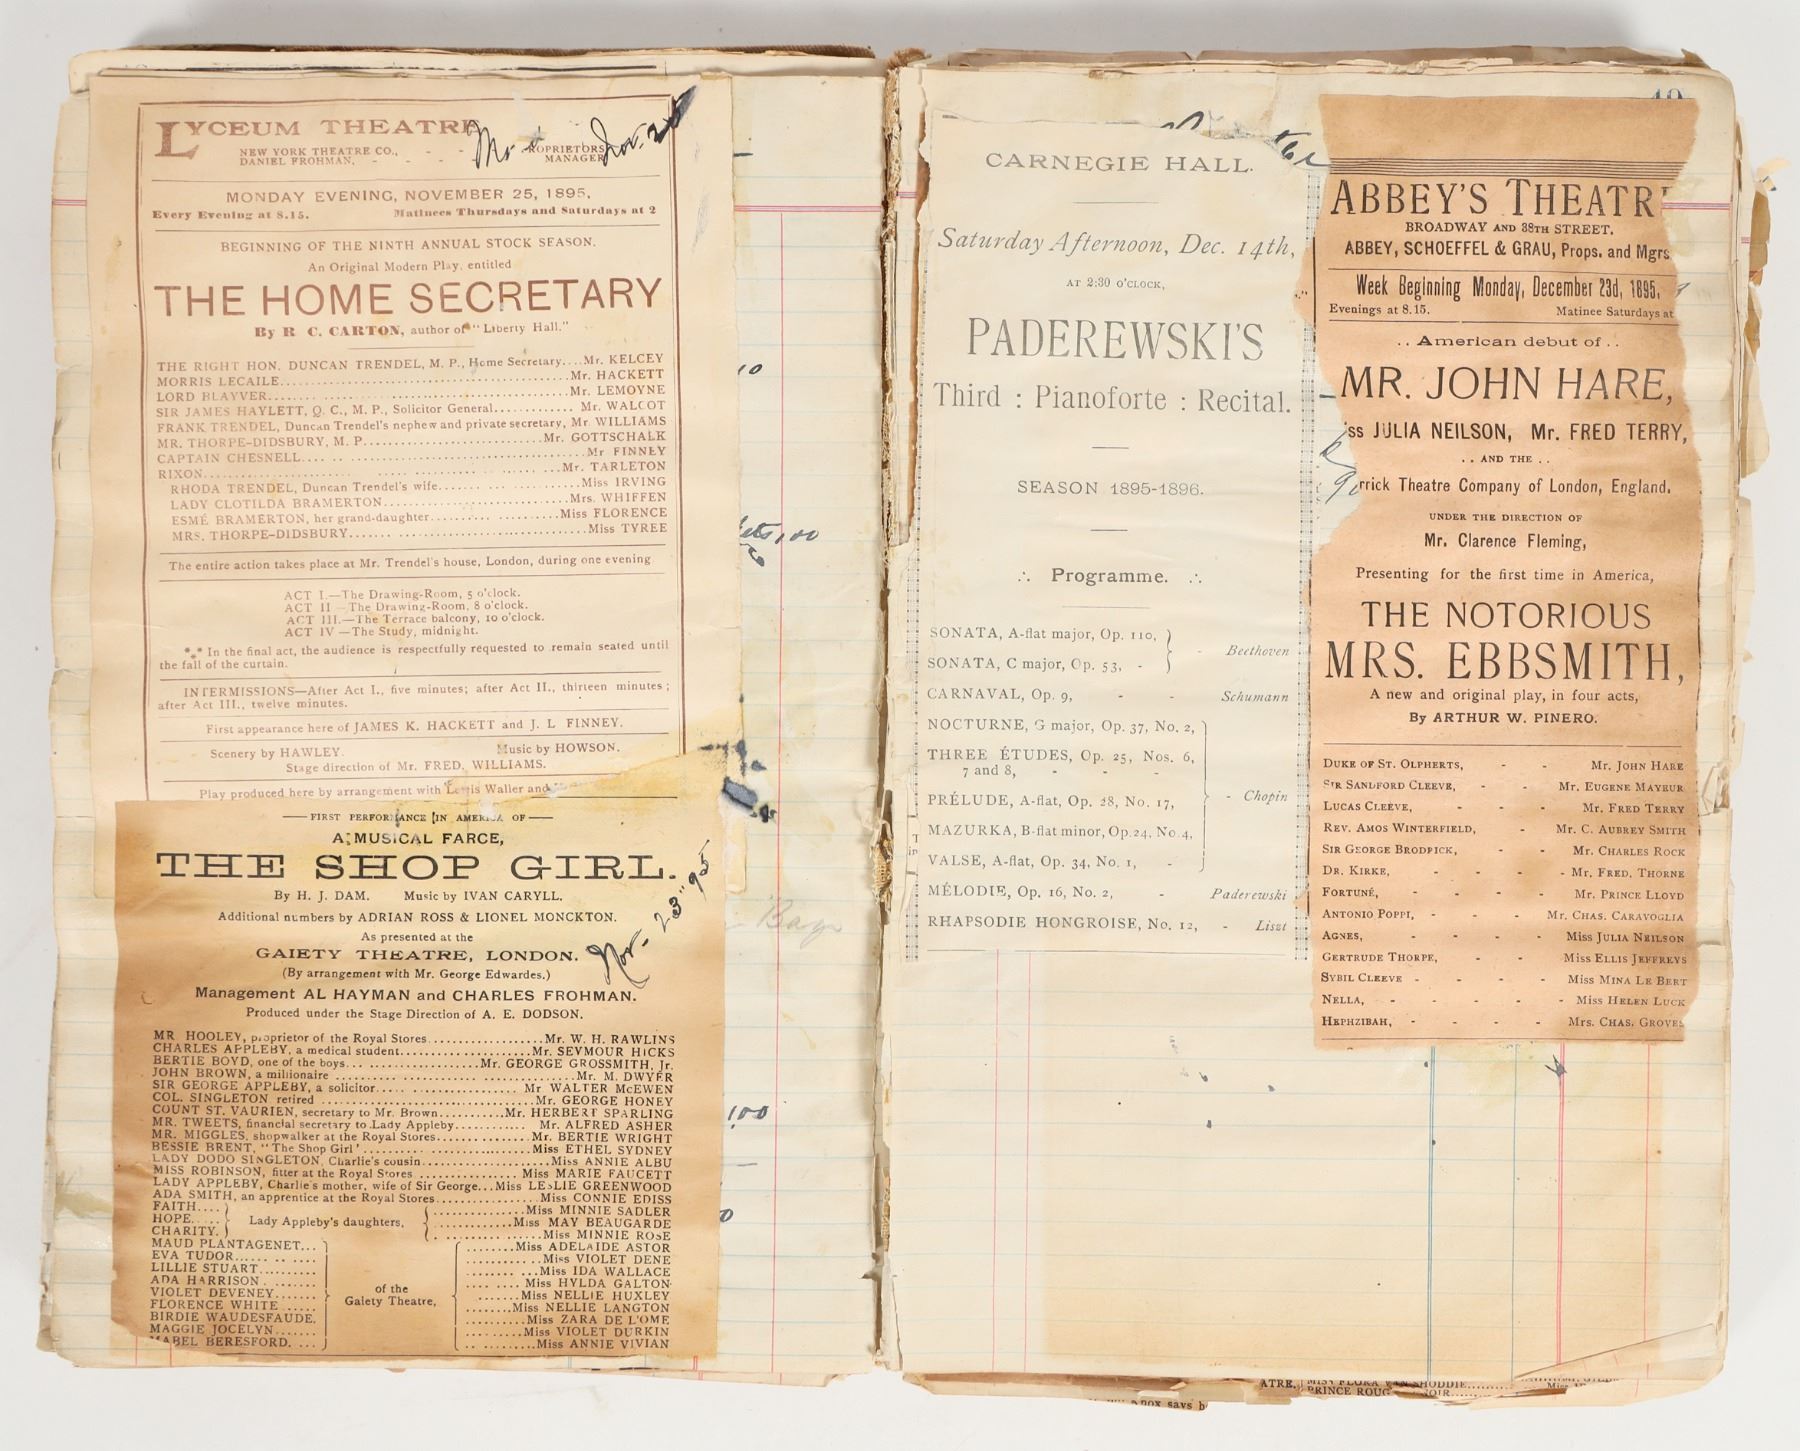 LYCEUM THEATRE
NEW YORK THEATRE CO., - - PROPRIETORS
DANIEL FROHMAN, - - - - MANAGER
Nov. 25
MONDAY EVENING, NOVEMBER 25, 1895.
Every Evening at 8.15. Matinees Thursdays and Saturdays at 2
BEGINNING OF THE NINTH ANNUAL STOCK SEASON.
An Original Modern Play, entitled
THE HOME SECRETARY
By R C. CARTON, author of "Liberty Hall."
THE RIGHT HON. DUNCAN TRENDEL, M. P., Home Secretary....Mr. KELCEY
MORRIS LECAILE..........Mr. HACKETT
LORD BLAYVER..........Mr. LEMOYNE
SIR JAMES HAYLETT, Q. C., M. P., Solicitor General..........Mr. WALCOT
FRANK TRENDEL, Duncan Trendel's nephew and private secretary, Mr WILLIAMS
MR. THORPE-DIDSBURY, M. P..........Mr. GOTTSCHALK
CAPTAIN CHESNELL..........Mr FINNEY
RIXON..........Mr. TARLETON
RHODA TRENDEL, Duncan Trendel's wife..........Miss IRVING
LADY CLOTILDA BRAMERTON..........Mrs. WHIFFEN
ESMÉ BRAMERTON, her grand-daughter..........Miss FLORENCE
MRS. THORPE-DIDSBURY..........Miss TYREE
The entire action takes place at Mr. Trendel's house, London, during one evening
ACT I.—The Drawing-Room, 5 o'clock.
ACT II—The Drawing-Room, 8 o'clock.
ACT III.—The Terrace balcony, 10 o'clock.
ACT IV—The Study, midnight.
*** In the final act, the audience is respectfully requested to remain seated until
the fall of the curtain.
INTERMISSIONS—After Act I., five minutes; after Act II., thirteen minutes;
after Act III., twelve minutes.
First appearance here of JAMES K. HACKETT and J. L FINNEY.
Scenery by HAWLEY. Music by HOWSON.
Stage direction of Mr. FRED. WILLIAMS.
Play produced here by arrangement with Lewis Waller and
FIRST PERFORMANCE IN AMERICA OF
A MUSICAL FARCE,
THE SHOP GIRL.
By H. J. DAM. Music by IVAN CARYLL.
Additional numbers by ADRIAN ROSS & LIONEL MONCKTON.
As presented at the
GAIETY THEATRE, LONDON.
Nov. 23" 95
(By arrangement with Mr. George Edwardes.)
Management AL HAYMAN and CHARLES FROHMAN.
Produced under the Stage Direction of A. E. DODSON.
MR. HOOLEY, proprietor of the Royal Stores..........Mr. W. H. RAWLINS
CHARLES APPLEBY, a medical student..........Mr. SEYMOUR HICKS
BERTIE BOYD, one of the boys..........Mr. GEORGE GROSSMITH, Jr.
JOHN BROWN, a millionaire..........Mr. M. DWYER
SIR GEORGE APPLEBY, a solicitor..........Mr WALTER McEWEN
COL. SINGLETON retired..........Mr. GEORGE HONEY
COUNT ST. VAURIEN, secretary to Mr. Brown..........Mr. HERBERT SPARLING
MR. TWEETS, financial secretary to Lady Appleby..........Mr. ALFRED ASHER
MR. MIGGLES, shopwalker at the Royal Stores..........Mr. BERTIE WRIGHT
BESSIE BRENT, "The Shop Girl'..........Miss ETHEL SYDNEY
LADY DODO SINGLETON, Charlie's cousin..........Miss ANNIE ALBU
MISS ROBINSON, fitter at the Royal Stores..........Miss MARIE FAUCETT
LADY APPLEBY, Charlie's mother, wife of Sir George...Miss LESLIE GREENWOOD
ADA SMITH, an apprentice at the Royal Stores..........Miss CONNIE EDISS
FAITH..........Miss MINNIE SADLER
HOPE..... Lady Appleby's daughters, ..........Miss MAY BEAUGARDE
CHARITY..........Miss MINNIE ROSE
MAUD PLANTAGENET..........Miss ADELAIDE ASTOR
EVA TUDOR..........Miss VIOLET DENE
LILLIE STUART..........Miss IDA WALLACE
ADA HARRISON..........Miss HYLDA GALTON
VIOLET DEVENEY.......... of the ..........Miss NELLIE HUXLEY
FLORENCE WHITE...... Gaiety Theatre, ..........Miss NELLIE LANGTON
BIRDIE WAUDESFAUDE..........Miss ZARA DE L'OME
MAGGIE JOCELYN..........Miss VIOLET DURKIN
MABEL BERESFORD..........Miss ANNIE VIVIAN
CARNEGIE HALL.
Saturday Afternoon, Dec. 14th,
AT 2:30 O'CLOCK,
PADEREWSKI'S
Third : Pianoforte : Recital.
SEASON 1895-1896.
Programme.
SONATA, A-flat major, Op. 110,
SONATA, C major, Op. 53, - - Beethoven
CARNAVAL, Op. 9, - - Schumann
NOCTURNE, G major, Op. 37, No. 2,
THREE ÉTUDES, Op. 25, Nos. 6,
7 and 8, - - -
PRÉLUDE, A-flat, Op. 28, No. 17, - Chopin
MAZURKA, B-flat minor, Op. 24, No. 4,
VALSE, A-flat, Op. 34, No. 1, -
MÉLODIE, Op. 16, No. 2, - Paderewski
RHAPSODIE HONGROISE, No. 12, - Liszt
ABBEY'S THEATR
BROADWAY AND 38TH STREET.
ABBEY, SCHOEFFEL & GRAU, Props. and Mgrs
Week Beginning Monday, December 23d, 1895,
Evenings at 8.15. Matinee Saturdays at
.. American debut of ..
MR. JOHN HARE,
iss JULIA NEILSON, Mr. FRED TERRY,
.. AND THE ..
rrick Theatre Company of London, England,
UNDER THE DIRECTION OF
Mr. Clarence Fleming,
Presenting for the first time in America,
THE NOTORIOUS
MRS. EBBSMITH,
A new and original play, in four acts,
By ARTHUR W. PINERO.
DUKE OF ST. OLPHERTS, - - MR. JOHN HARE
SIR SANDFORD CLEEVE, - - MR. EUGENE MAYEUR
LUCAS CLEEVE, - - - MR. FRED TERRY
REV. AMOS WINTERFIELD, - MR. C. AUBREY SMITH
SIR GEORGE BRODRICK, - - MR. CHARLES ROCK
DR. KIRKE, - - - - MR. FRED. THORNE
FORTUNÉ, - - - MR. PRINCE LLOYD
ANTONIO POPPI, - - - MR. CHAS. CARAVOGLIA
AGNES, - - - - MISS JULIA NEILSON
GERTRUDE THORPE, - - MISS ELLIS JEFFREYS
SYBIL CLEEVE - - - - MISS MINA LE BERT
NELLA, - - - - - MISS HELEN LUCK
HEPHZIBAH, - - - - MRS. CHAS. GROVES